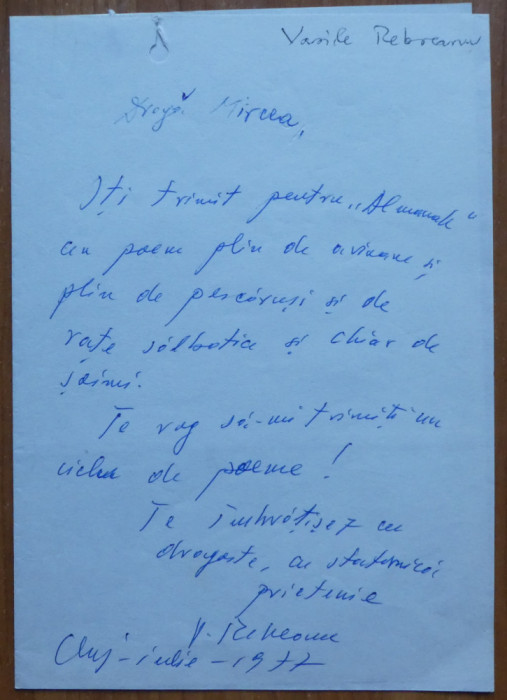 Vasile Rebreanu
Dragă Mircea,
Iți trimit pentru „Almanah"
un poem plin de avioane și
plin de pescăruși și de
rațe sălbatice și chiar de
șoimi.
Te rog să-mi trimiți un
ciclu de poeme!
Te îmbrățișez cu
dragoste, cu statornică
prietenie
V. Rebreanu
Cluj - iulie - 1977